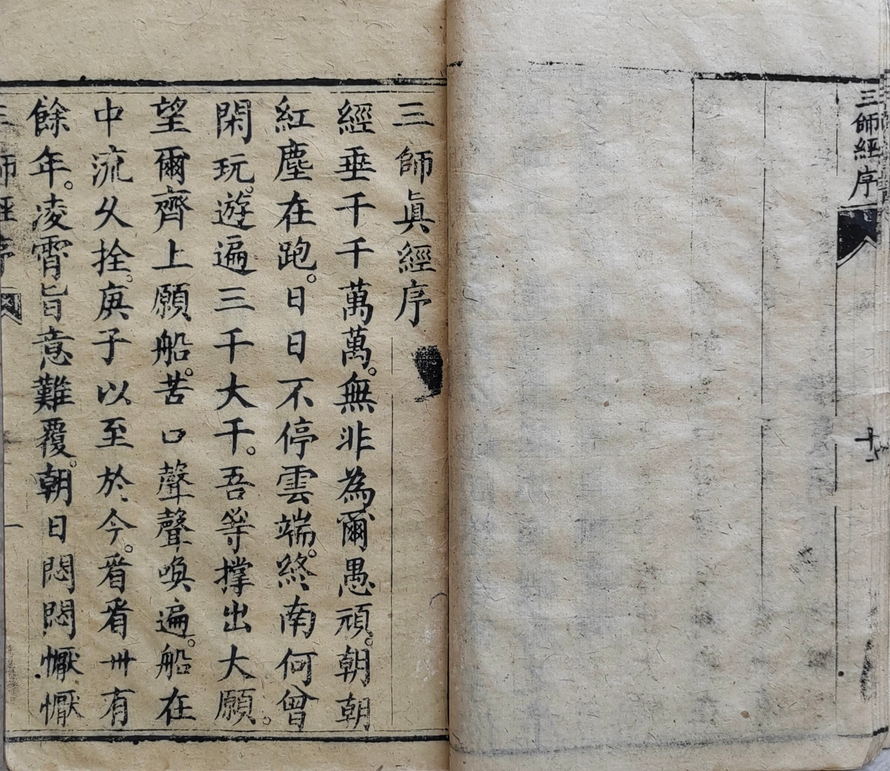 三師經序
十
三師眞經序
經垂千千萬萬。無非為爾愚頑。朝朝
紅塵在跑。日日不停雲端。終南何曾
閑玩。遊遍三千大千。吾等撑出大願。
望爾齊上願船。苦口聲聲喚遍。船在
中流久拴。庚子以至於今。看看卅有
餘年。凌霄旨意難覆。朝日悶悶懨懨
三師經序
一